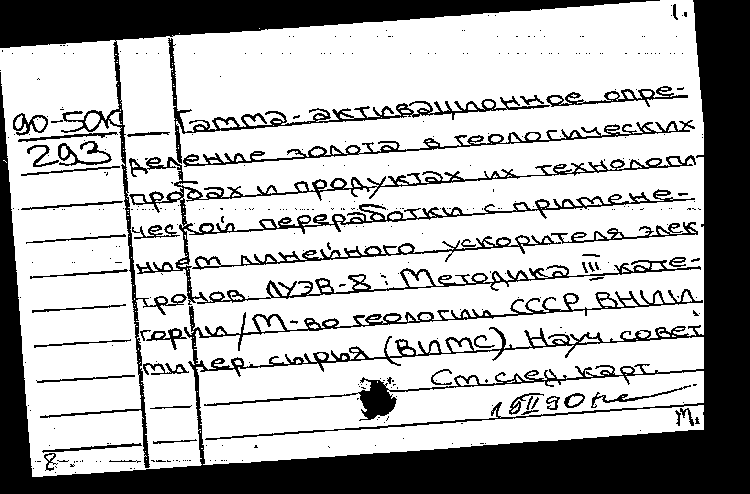 1.
90-50К
293
Гамма-активационное опре-
деление золота в геологических
пробах и продуктах их технологи-
ческой переработки с примене-
нием линейного ускорителя элек-
тронов ЛУЭВ-8 : Методика III кате-
гории / М-во геологии СССР, ВНИИ
минер. сырья (ВИМС). Науч. совет
См. след. карт.
М.
8